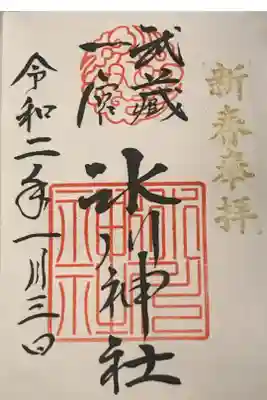 新春奉拝
武蔵
一廰
氷川神社
令和二年一月三日